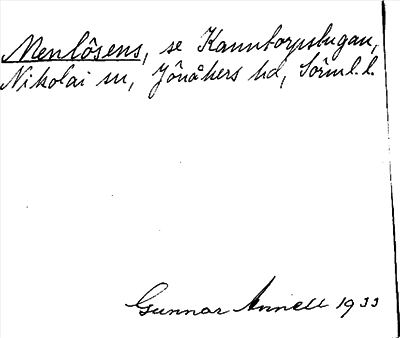 Menlösens, se Kanntorpstugan,
Nikolai sn, Jönåkers hd, Sörml. l.
Gunnar Annell 1933